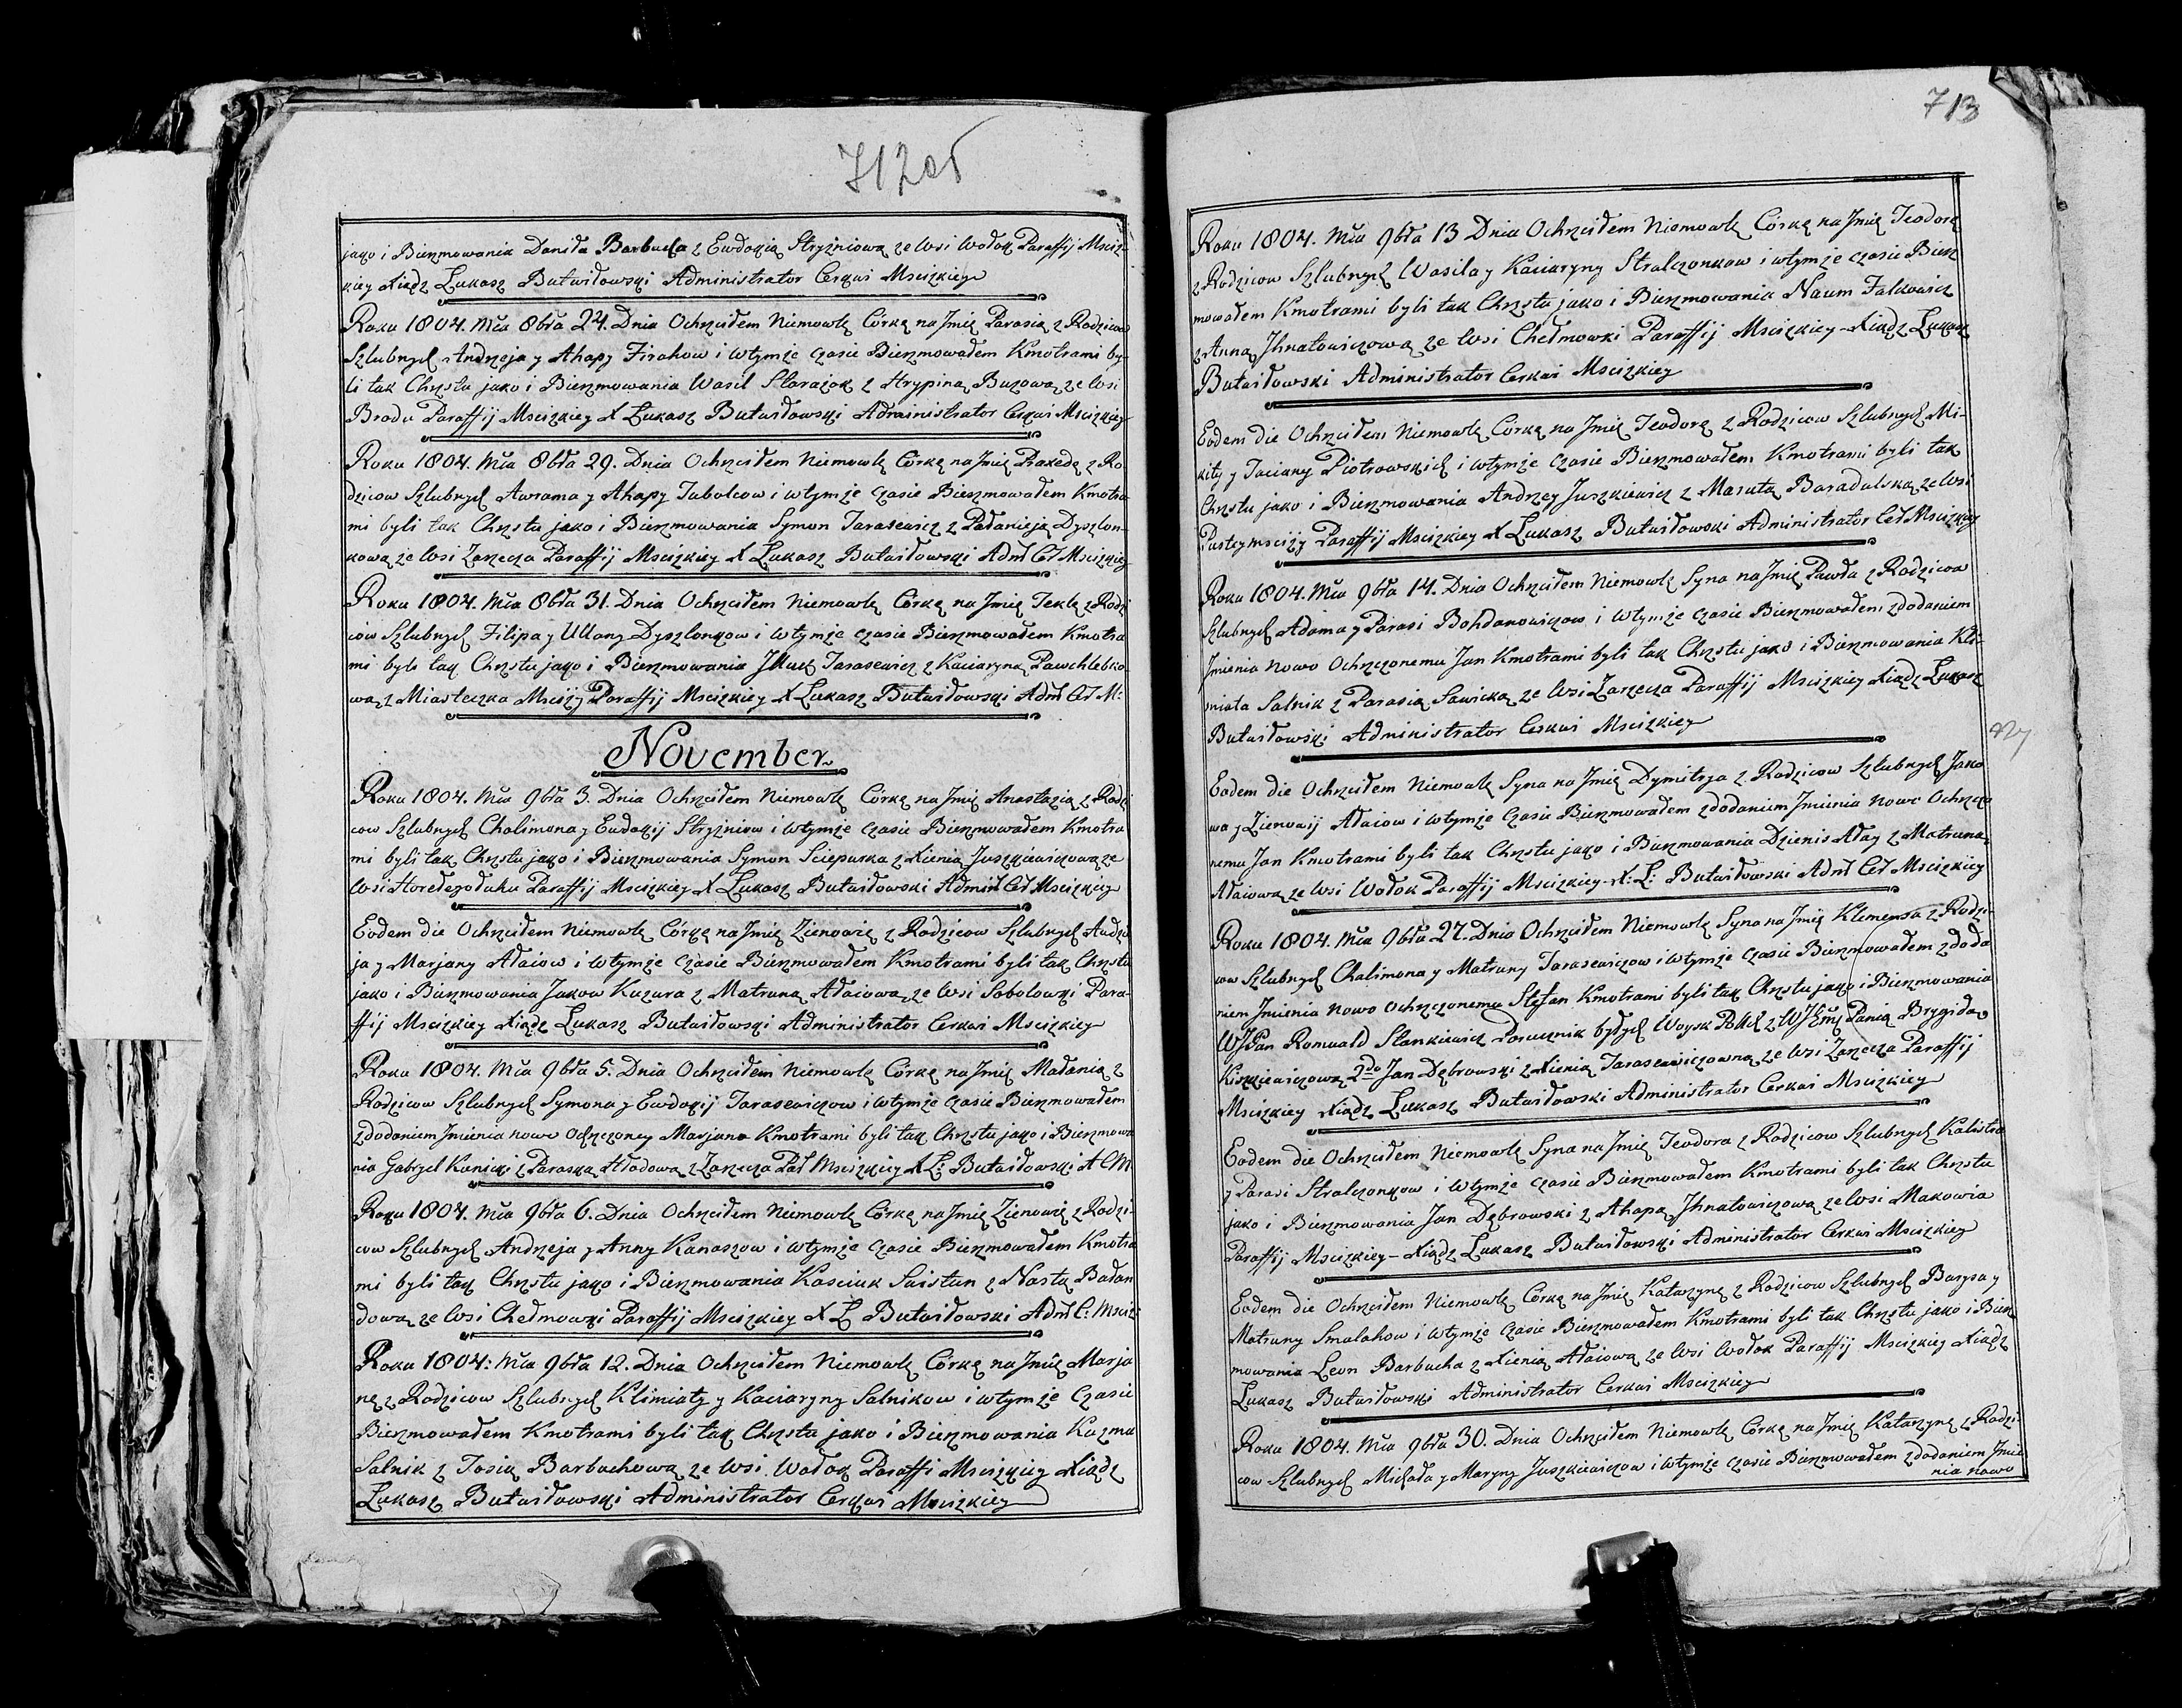 712об
jako i Bierzmowania Daniła Barbucha z Ewdokią Stryżniową ze Wsi Wołok Paraffij Msciż-
kiey Xiądz Łukasz Butwiłowski Administrator Cerkwi Mscizkiey
Roku 1804. Mca 8bra 24. Dnia Ochrzciłem Niemowlę Córkę na Jmię Parasię z Rodzicow
Szlubnych Andrzeja y Ahapy Firahow i wtymże czasie Bierzmowałem Kmotrami by-
li tak Chrzstu jako i Bierzmowania Wasil Starażok z Hrypiną Buzową ze Wsi
Brodu Paraffij Mscizkiey X Łukasz Butwiłowski Administrator Cerkwi Mscizkiey
Roku 1804. Mca 8bra 29. Dnia Ochrzciłem Niemowlę Córkę na Jmię Praxedę z Ro
dzicow Szlubnych Awrama y Ahapy Tabolcow i wtymże czasie Bierzmowałem Kmotra
mi byli tak Chrzstu jako i Bierzmowania Symon Tarasewicz z Pałanieją Dyszlon-
kową ze Wsi Zarzecza Paraffij Mscizkiey X Łukasz Butwiłowski Admr Cer Mscizkiey
Roku 1804. Mca 8bra 31. Dnia Ochrzciłem Niemowlę Córkę na Jmię Teklę z Rodzi
cow Szlubnych Filipa y Ullany Dyszlonkow i wtymże czasie Bierzmowałem Kmotra
mi byli tak Chrzstu jako i Bierzmowania Jlluch Tarasewicz z Kaciaryną Pawchlebko
wą z Miasteczka Mscizy Paraffij Mscizkiey X Łukasz Butwiłowski Admr Cer M:
November
Roku 1804. Mca 9bra 3. Dnia Ochrzciłem Niemowlę Córkę na Jmię Anastazią z Rodzi
cow Szlubnych Chalimona y Eudokij Stryżniow i wtymże czasie Bierzmowałem Kmotra
mi byli tak Chrzstu jako i Bierzmowania Symon Sciepurka z Xienią Juszkiewiczową ze
Wsi Horodezoduhu Paraffij Mscizkiey X Łukasz Butwiłowski Admin Cer Mscizkiey
Eodem die Ochrzciłem Niemowlę Córkę na Jmię Zienowię z Rodzicow Szlubnych Andze
ja y Marjany Ałaiow i wtymże czasie Bierzmowałem Kmotrami byli tak Chrzstu
jako i Bierzmowania Jakow Kuzura z Matruną Ałaiową ze Wsi Sobolowki Para-
ffij Mscizkiey Xiądz Łukasz Butwiłowski Administrator Cerkwi Mscizkiey
Roku 1804. Mca 9bra 5. Dnia Ochrzciłem Niemowlę Córkę na Jmię Małanią z
Rodzicow Szlubnych Symona y Ewdokij Tarasewiczow i wtymże czasie Bierzmowałem
zdodaniem Jmienia nowo Ochrzczoney Marjana Kmotrami byli tak Chrzstu jako i Bierzmowa
nia Gabryel Kanicki z Paraską Hładową z Zarzecza Par Mscizkiey X Ł: Butwiłowski A C M
Roku 1804. Mca 9bra 6. Dnia Ochrzciłem Niemowlę Córkę na Jmię Zienowię z Rodzi-
cow Szlubnych Andrzeja y Anny Kanaszow i wtymże czasie Bierzmowałem Kmotra
mi byli tak Chrzstu jako i Bierzmowania Kasciuk Swistun z Nastą Bałan
dową ze Wsi Chełmowki Paraffij Mscizkiey X Ł Butwiłowski Admr C: Msciz:
Roku 1804: Mca 9bra 12. Dnia Ochrzciłem Niemowlę Córkę na Jmię Marja
nę z Rodzicow Szlubnych Klimiaty y Kaciaryny Salnikow i wtymże czasie
Bierzmowałem Kmotrami byli tak Chrzstu jako i Bierzmowania Kuzma
Salnik z Tosią Barbuchową ze Wsi Wołok Paraffi Mscizkiey Xiądz
Łukasz Butwiłowski Administrator Cerkwi Mscizkiey
713
Roku 1804. Mca 9bra 13 Dnia Ochrzciłem Niemowlę Córkę na Jmię Teodorę
z Rodzicow Szlubnych Wasila y Kaciaryny Stralczonkow i wtymże czasie Bierz
mowałem Kmotrami byli tak Chrzstu jako i Bierzmowania Naum Falkowicz
z Anną Jhnatowiczową ze Wsi Chełmowki Paraffij Mscizkiey Xiądz Łukasz
Butwiłowski Administrator Cerkwi Mscizkiey
Eodem die Ochrzciłem Niemowlę Córkę na Jmię Teodorę z Rodzicow Szlubnych Mi-
kity y Taciany Piotrowskich i wtymże czasie Bierzmowałem Kmotrami byli tak
Chrzstu jako i Bierzmowania Andrzey Juszkiewicz z Marutą Baradulską ze Wsi
Pusteymscizy Paraffij Mscizkiey X Łukasz Butwiłowski Administrator Cer Mscizkiey
Roku 1804. Mca 9bra 14. Dnia Ochrzciłem Niemowlę Syna na Jmię Pawła z Rodzicow
Szlubnych Adama y Parasi Bohdanowiczow i wtymże czasie Bierzmowałem zdodaniem
Jmienia nowo Ochrzczonemu Jan Kmotrami byli tak Chrzstu jako i Bierzmowania Kli-
miata Salnik z Parasią Sawicką ze Wsi Zarzecza Paraffij Mscizkiey Xiądz Łukasz
Butwiłowski Administrator Cerkwi Mscizkiey
Eodem die Ochrzciłem Niemowlę Syna na Jmię Dymitrja z Rodzicow Szlubnych Jako
wa y Zienowij Ałaiow i wtymże czasie Bierzmowałem zdodaniem Jmienia nowo Ochrzczo
nemu Jan Kmotrami byli tak Chrzstu jako i Bierzmowania Dzienis Ałay z Matruną
Ałaiową ze Wsi Wołok Paraffij Mscizkiey X: Ł: Butwiłowski Admr Cer Mscizkiey
Roku 1804. Mca 9bra 27. Dnia Ochrzciłem Niemowlę Syna na Jmię Klemensa z Rodzi-
cow Szlubnych Chalimona y Matruny Tarasewiczow i wtymże czasie Bierzmowałem zdoda
niem Jmienia nowo Ochrzczonemu Stefan Kmotrami byli tak Chrzstu jako i Bierzmowania
WJPan Romuald Stankiewicz Porucznik byłych Woysk Polch z WJEmę Panią Brygidą
Kiszkiewiczową 2do Jan Dębrowski z Xienią Tarasewiczowną ze Wsi Zarzecza Paraffij
Mscizkiey Xiądz Łukasz Butwiłowski Administrator Cerkwi Mscizkiey
Eodem die Ochrzciłem Niemowlę Syna na Jmię Teodora z Rodzicow Szlubnych Kalistra
y Parasi Stralczonkow i wtymże czasie Bierzmowałem Kmotrami byli tak Chrzstu
jako i Bierzmowania Jan Dębrowski z Ahapą Jhnatowiczową ze Wsi Makowia
Paraffij Mscizkiey – Xiądz Łukasz Butwiłowski Administrator Cerkwi Mscizkiey
Eodem die Ochrzciłem Niemowlę Córkę na Jmię Katarzynę z Rodzicow Szlubnych Barysa y
Matruny Smalahow i wtymże czasie Bierzmowałem Kmotrami byli tak Chrzstu jako i Bierz
mowania Leon Barbucha z Xienią Ałaiową ze Wsi Wołok Paraffij Mscizkiey Xiądz
Łukasz Butwiłowski Administrator Cerkwi Mscizkiey
Roku 1804. Mca 9bra 30. Dnia Ochrzciłem Niemowlę Córkę na Jmię Katarzynę z Rodzi-
cow Szlubnych Michała y Maryny Juszkiewiczow i wtymże czasie Bierzmowałem zdodaniem Jmie
nia nowo